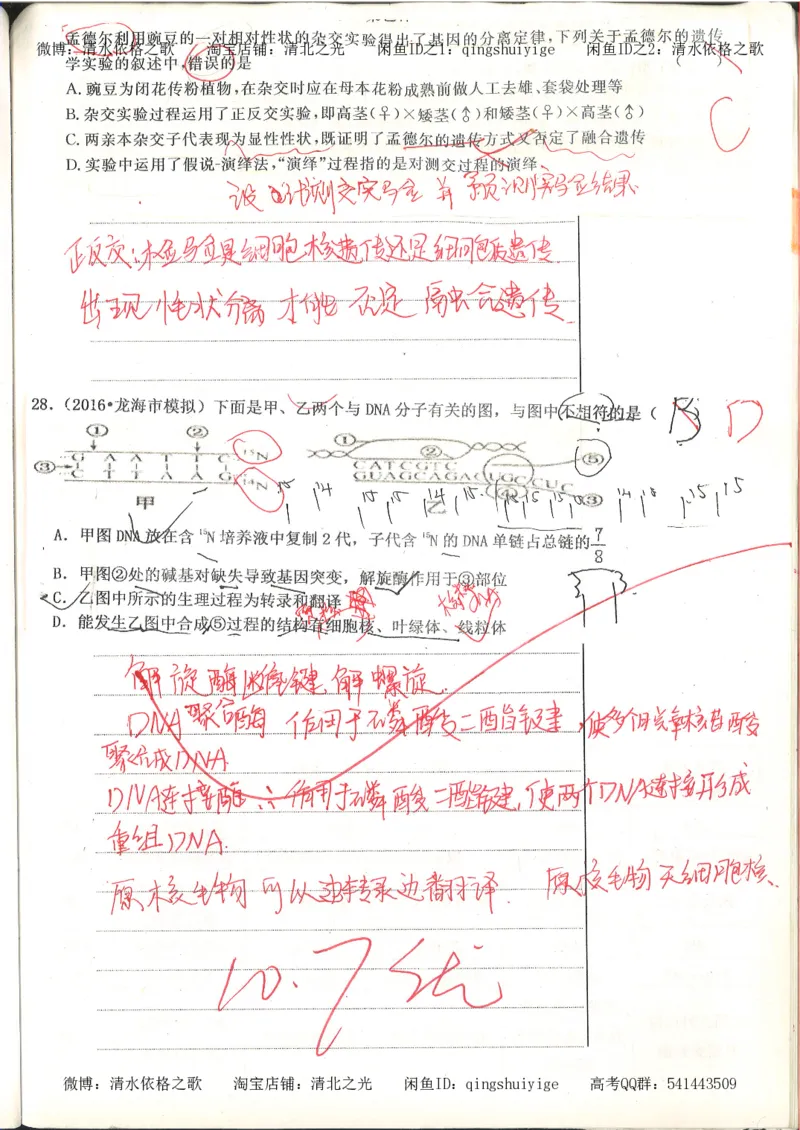 孟德尔利用豌豆的一对相对性状的杂交实验得出了基因的分离定律，下列关于孟德尔的遗传
微博：清水依格之歌 淘宝店铺：清北之光 闲鱼ID之1：qingshuiyige 闲鱼ID之2：清水依格之歌
学实验的叙述中，错误的是 （ ）
A.豌豆为闭花传粉植物，在杂交时应在母本花粉成熟前做人工去雄、套袋处理等
B.杂交实验过程运用了正反交实验，即高茎(♀)×矮茎(♂)和矮茎(♀)×高茎(♂)
C.两亲本杂交子代表现为显性性状，既证明了孟德尔的遗传方式又否定了融合遗传
D.实验中运用了假说-演绎法，“演绎”过程指的是对测交过程的演绎
C
设计测交实验 并 预测实验结果
正反交：检验是细胞核遗传还是细胞质遗传
出现性状分离 才能 否定 融合遗传
28．（2016•龙海市模拟）下面是甲、乙两个与 DNA 分子有关的图，与图中不相符的是（ B ） D
① ② ¹⁵N ① ② ⑤
③ G A A T T C
C T T A A G ¹⁴N
CATCGTC
GUAGCAGACUGCCUC ④ ③
甲 乙
A．甲图 DNA 放在含 ¹⁵N 培养液中复制 2 代，子代含 ¹⁵N 的 DNA 单链占总链的 7/8
B．甲图②处的碱基对缺失导致基因突变，解旋酶作用于③部位
C．乙图中所示的生理过程为转录和翻译
D．能发生乙图中合成⑤过程的结构有细胞核、叶绿体、线粒体
解旋酶断氢键 解螺旋.
DNA聚合酶 作用于磷酸二酯键，使多个脱氧核苷酸
聚合成DNA
DNA连接酶：作用于磷酸二酯键，使两个DNA连接形成
重组DNA.
原核生物可以边转录边翻译. 原核生物无细胞核.
10.7 优
微博：清水依格之歌 淘宝店铺：清北之光 闲鱼ID：qingshuiyige 高考QQ群：541443509